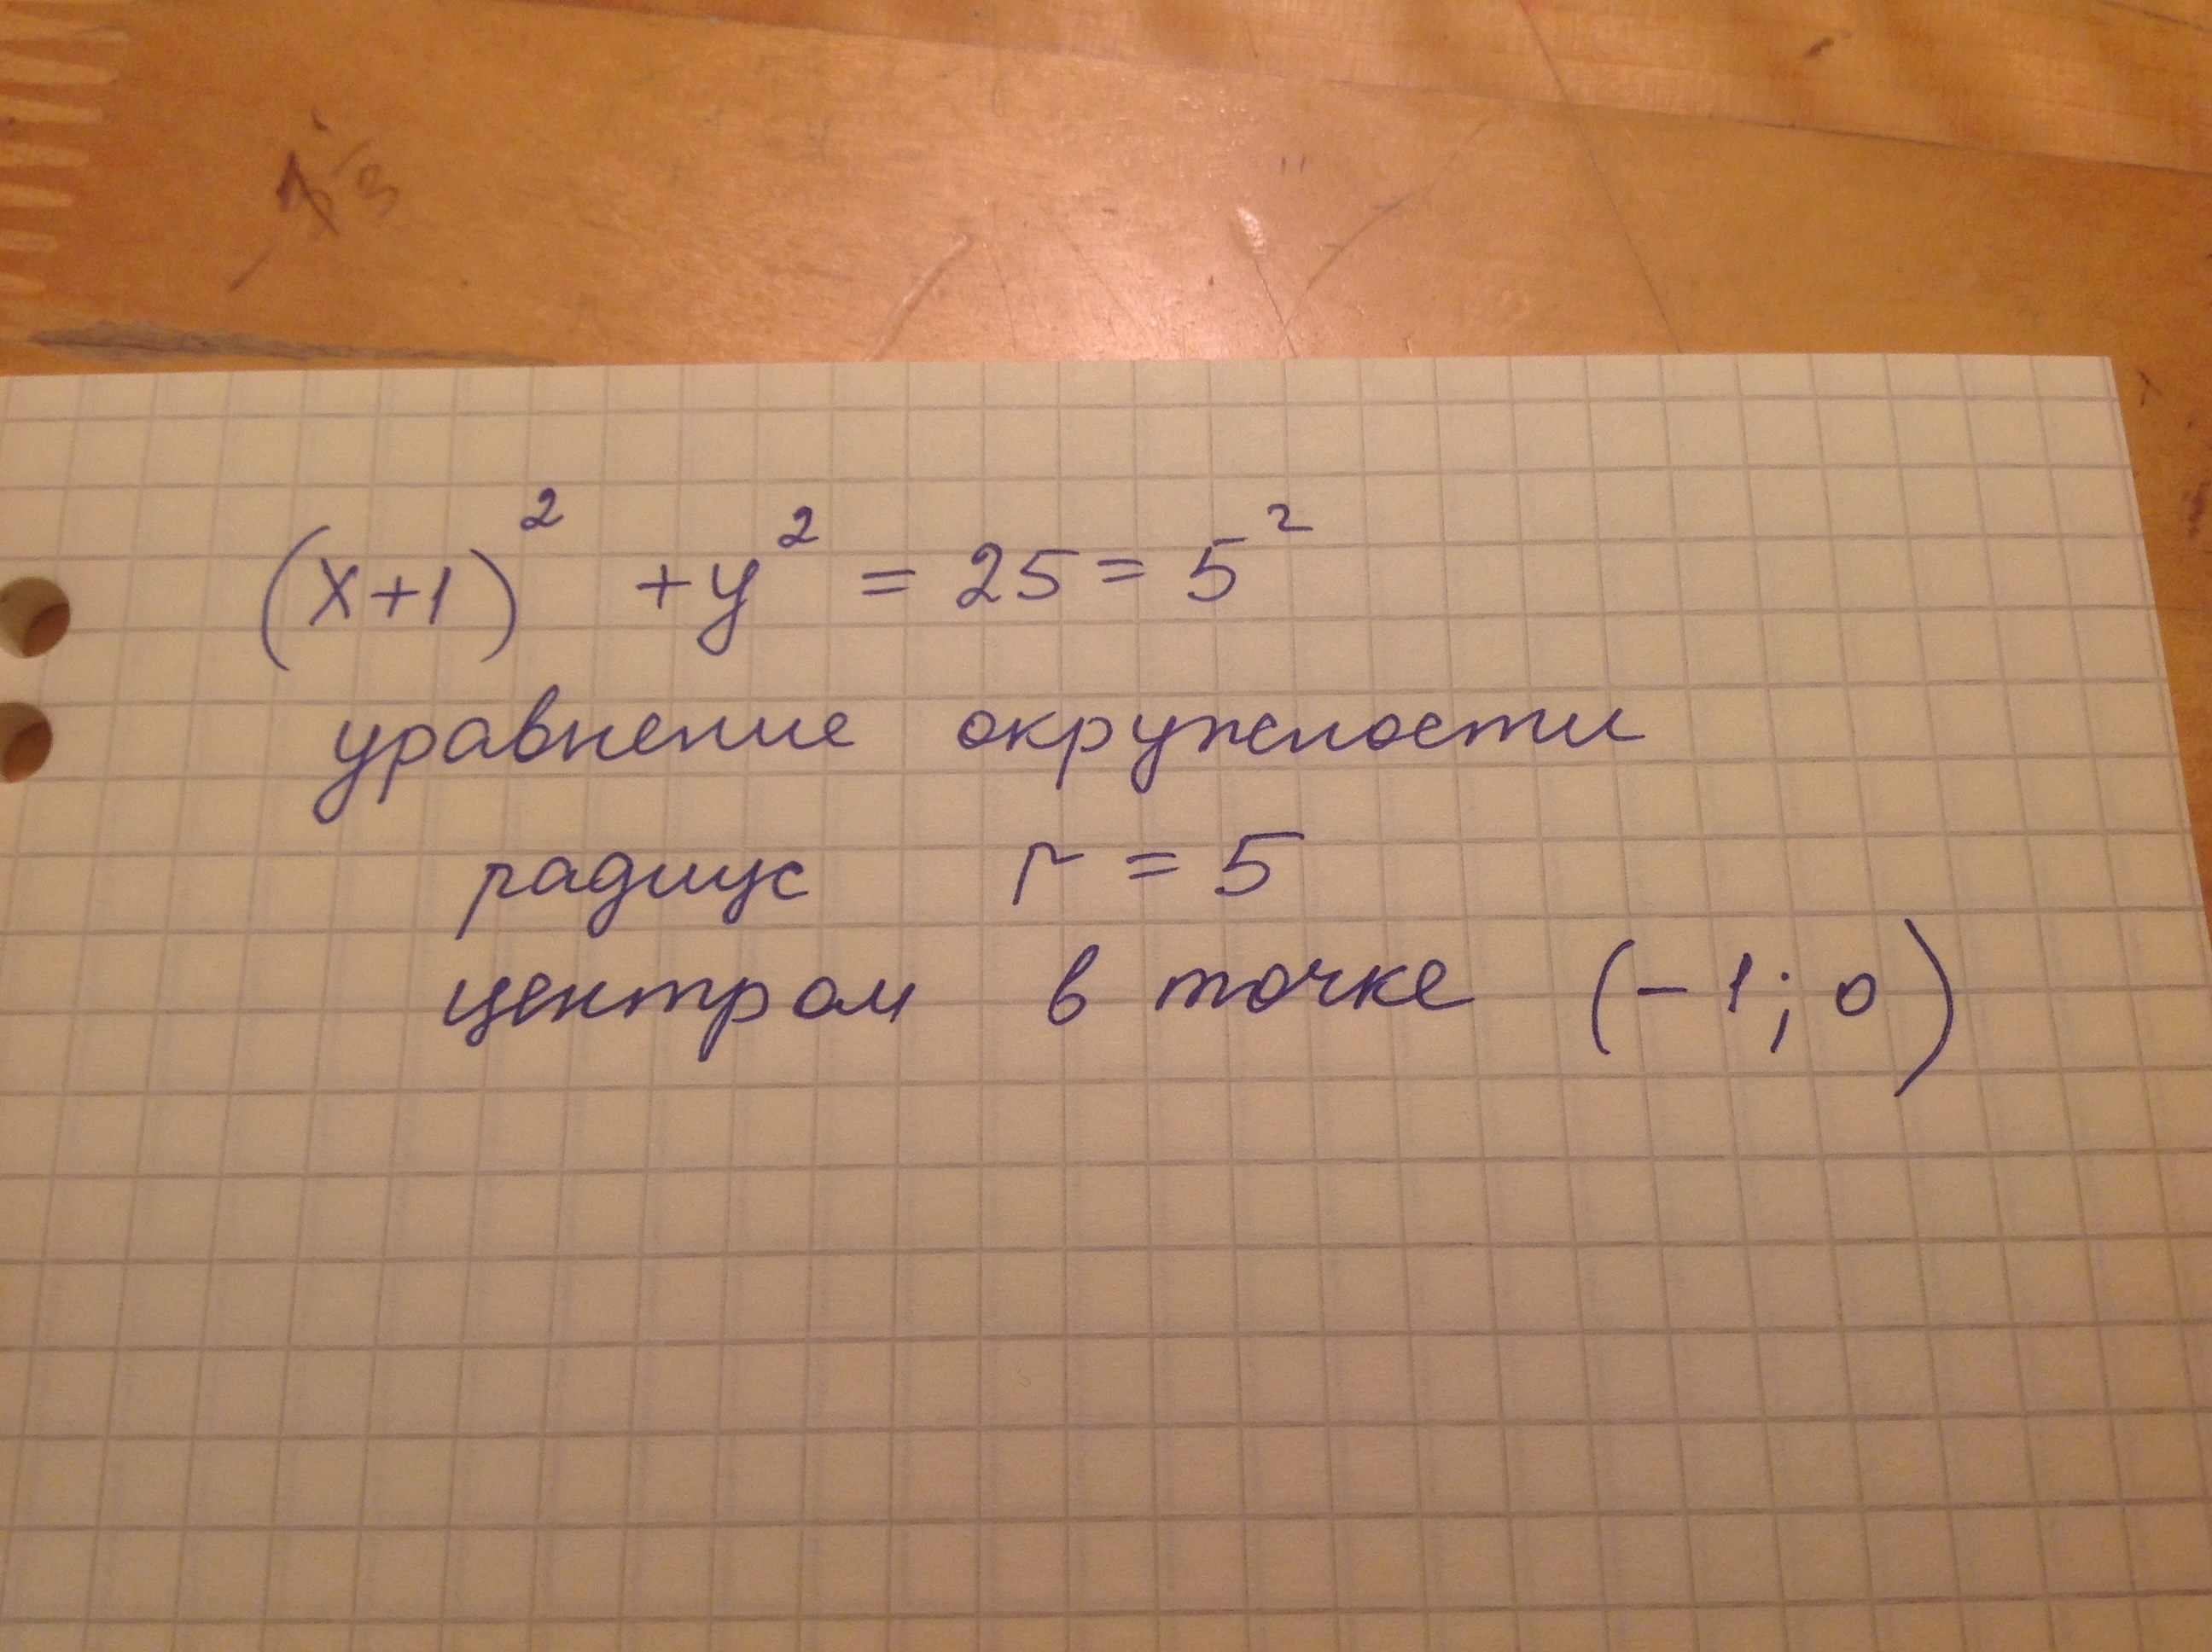 (x+1)² + y² = 25 = 5²
уравнение окружности
радиус r = 5
центром в точке (-1; 0)